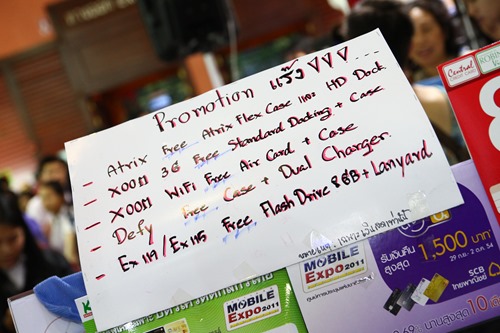 Promotion แรง
- Atrix Free Atrix Flex Case และ HD Dock
- XOOM 3G Free Standard Docking + Case
- XOOM WiFi Free Air Card + Case
- Defy Free Case + Dual Charger
- Ex119/Ex115 Free Flash Drive 8GB + Lanyard
Central
CREDIT CARD
ROBINS
MOBILE
EXPO 2011
MOBILE
EXPO 2011
รับเงินคืน
สูงสุด 1,500 บาท
29 ก.ย. - 2 ต.ค. 54
SCB
ไทยพาณิชย์
นานสูงสุด 10 เ